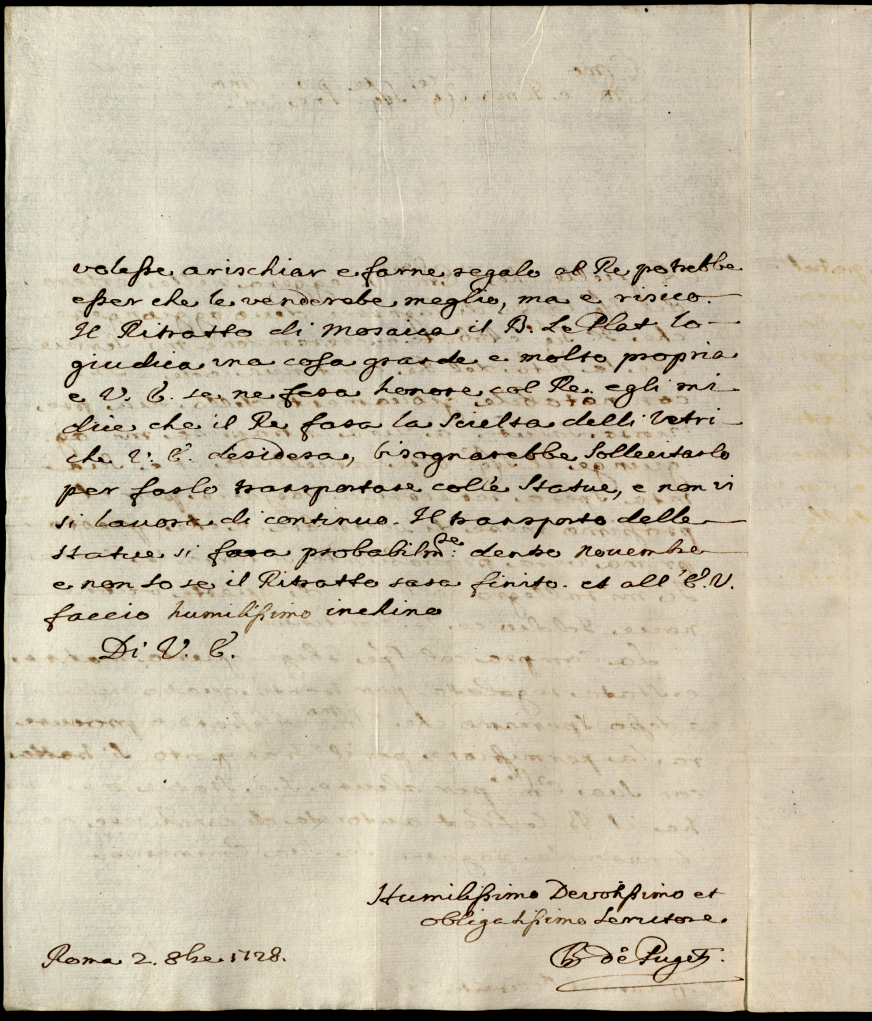 volesse arischiar e farne regalo al Re potrebbe
esser che le venderebe meglio, ma è risico.
Il Ritratto di Mosaica il B. Le Plat lo
giudica una cosa grande e molto propria
e V. E. se ne fara honore col Re. egli mi
dice che il Re fara la scielta delli vetri
che V. E. desidera, bisognarebbe sollecitarlo
per farlo transportare colle statue, e non vi
si lavora di continuo. Il transporto delle
statue si fara probabilm:te dentro novembre
e non so se il Ritratto sara finito. et all' E. V.
faccio humilissimo inchino
Di V. E.
Humilissimo Devotissimo et
obligatissimo Servitore
B de Puget.
Roma 2. 8bre 1728.